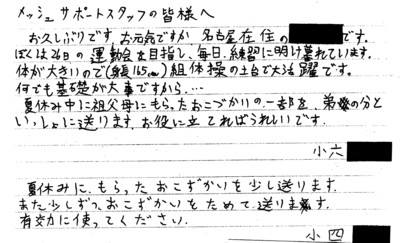 メッシュサポートスタッフの皆様へ
お久しぶりです。お元気ですか。名古屋在住の
ぼくは26日の運動会を目指し、毎日、練習に明け暮れています。
体が大きいので(身長165cm)組体操の土台で大活躍です。
何でも基礎が大事ですから…
夏休み中に祖父母にもらったおこづかいの一部を、弟の分と
いっしょに送ります。お役に立てればうれしいです。
小六
夏休みに、もらったおこずかいを少し送ります。
また少しずつ、おこずかいをためて、送ります。
有効に使ってください。
小四